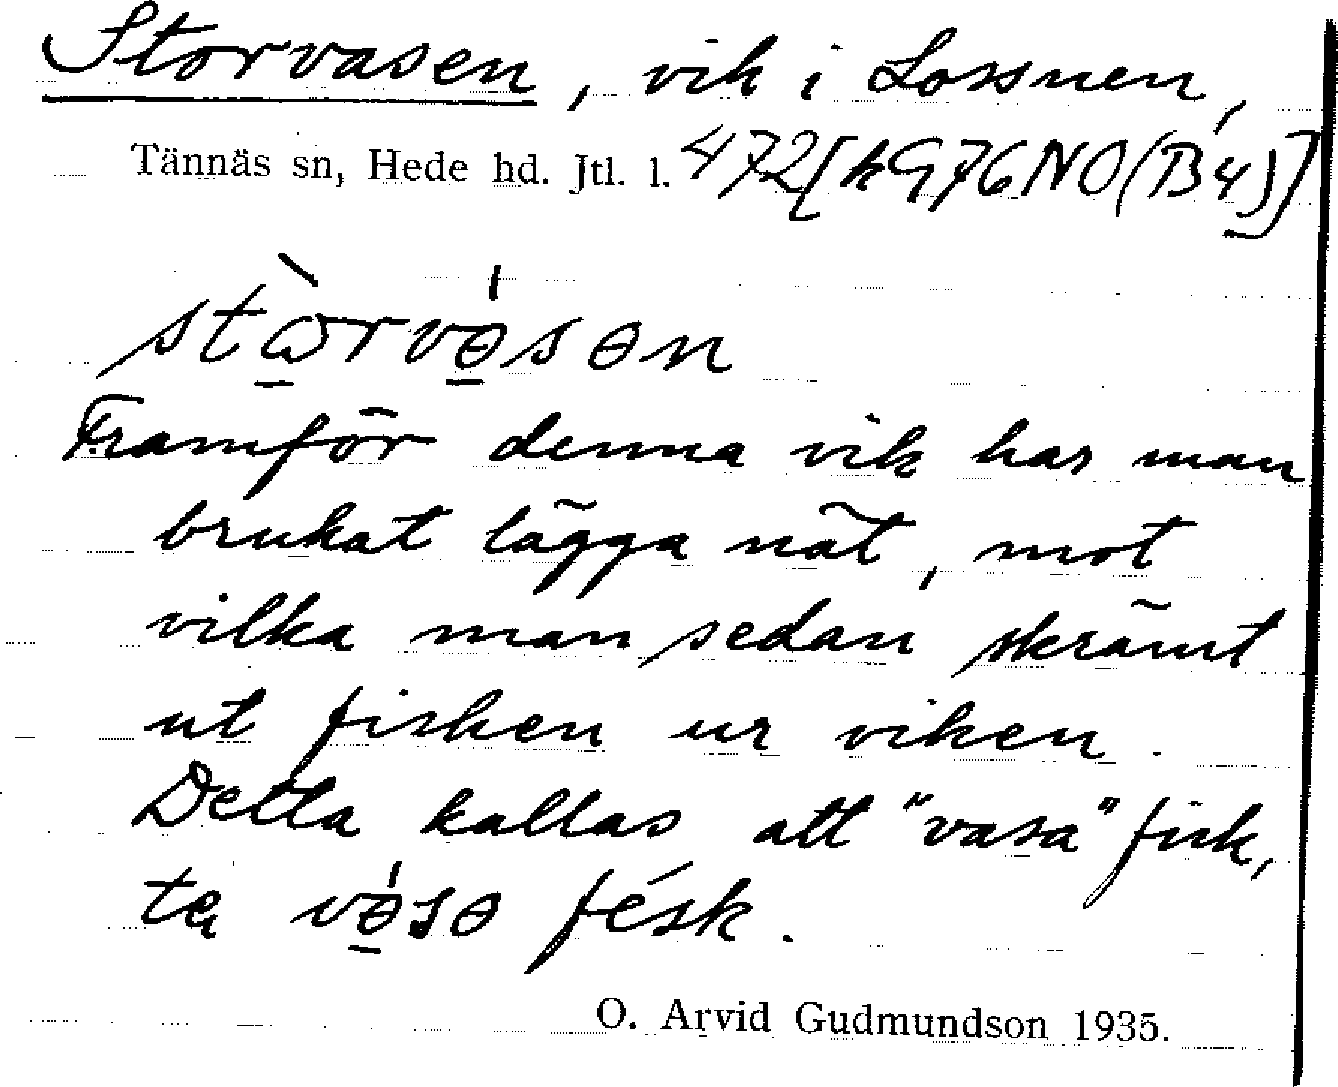 Storvasen, vik i Lossnen,
Tännäs sn, Hede hd. Jtl. l. 472[k 976 NO (B4)]
stɷ̀rvɵ́sɵn
Framför denna vik har man
brukat lägga nät, mot
vilka man sedan skrämt
ut fisken ur viken.
Detta kallas att "vasa" fisk,
vɵ́sɵ fésk.
O. Arvid Gudmundson 1935.